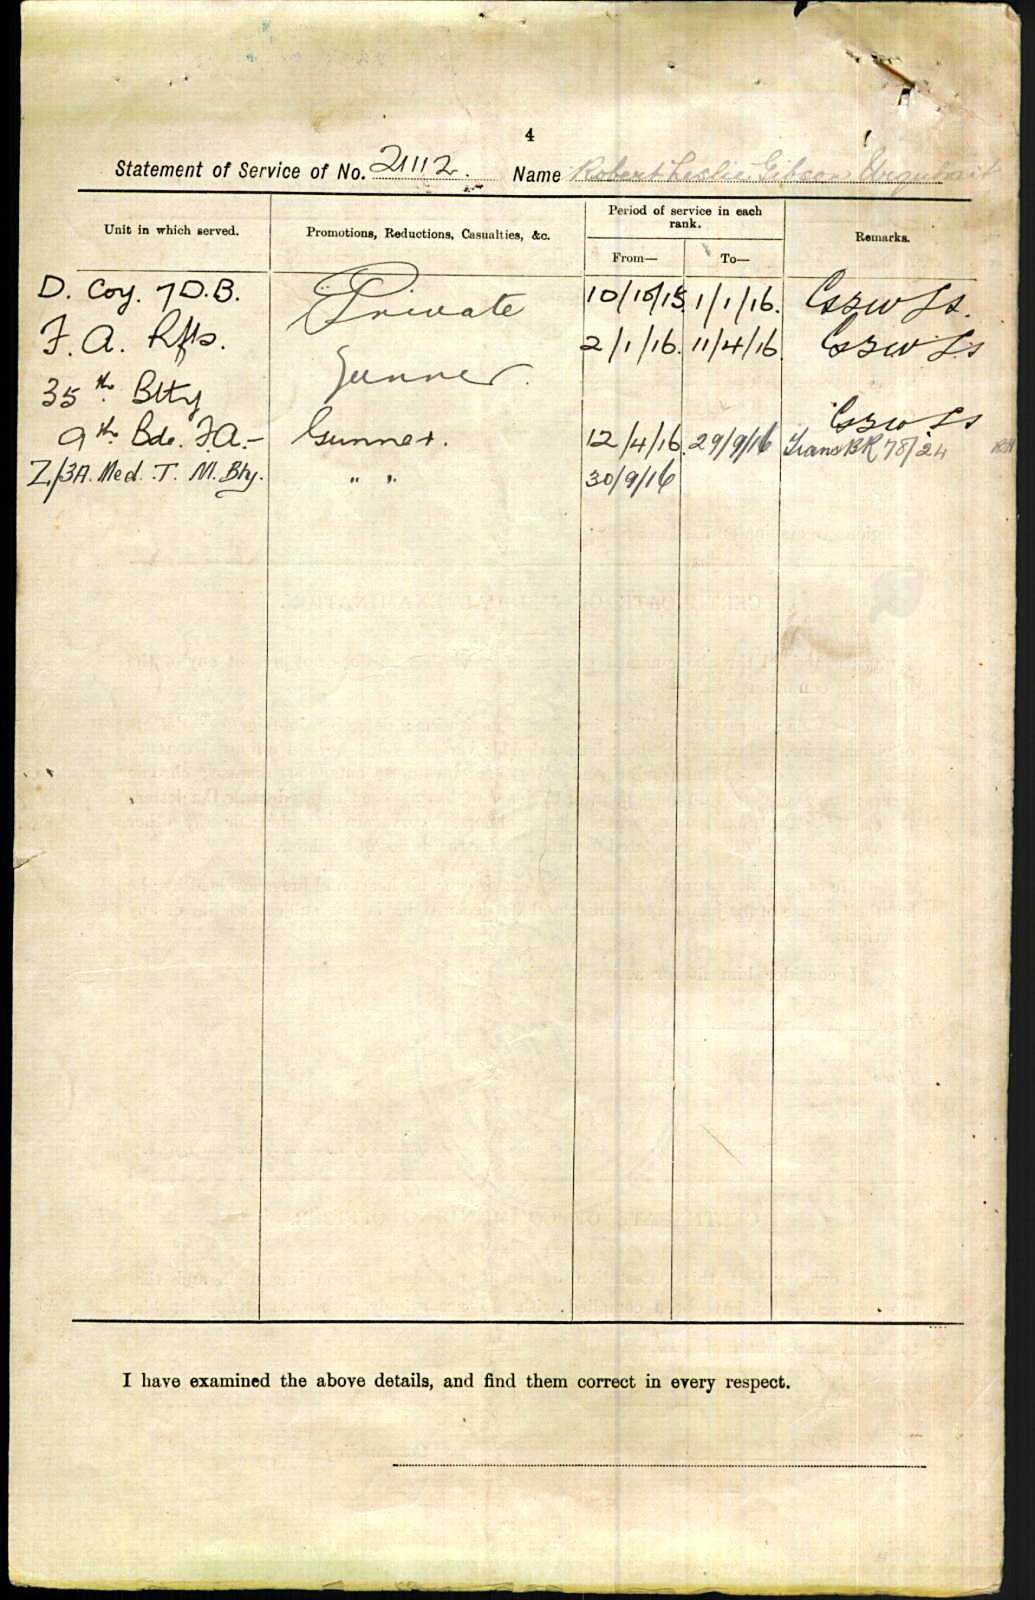 4
Statement of Service of No. 21112. Name Robert Leslie Gibson Urquhart
Unit in which served. Promotions, Reductions, Casualties, &c. Period of service in each rank. From— To— Remarks.
D. Coy. 7 D.B. Private 10/10/15 1/1/16.
F. A. Rfts. 2/1/16. 11/4/16
Gunner.
35th Btty
9th Bde. F.A.- Gunner. 12/4/16. 29/9/16 Trans BR 78/24
Z/3A. Med. T. M. Bty. " " 30/9/16
I have examined the above details, and find them correct in every respect.